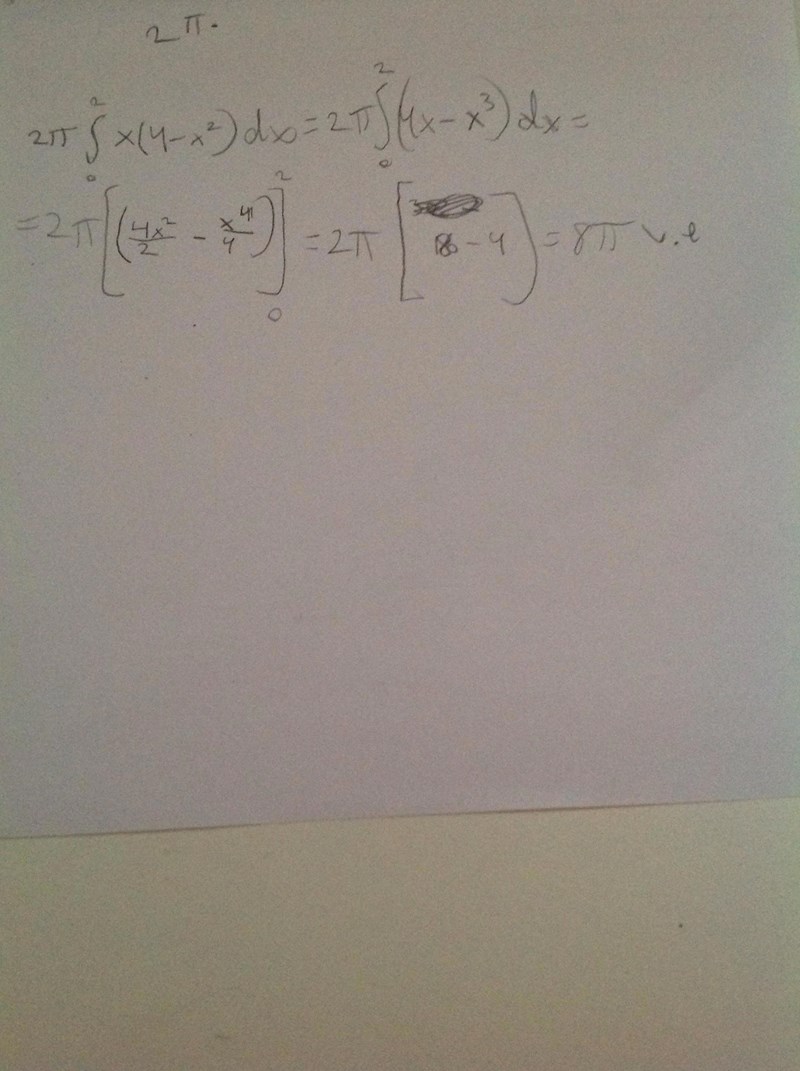 2π.
2π ∫₀² x(4-x²) dx = 2π ∫₀² (4x - x³) dx =
= 2π [(4x²/2 - x⁴/4)]₀² = 2π [8 - 4) = 8π v.e